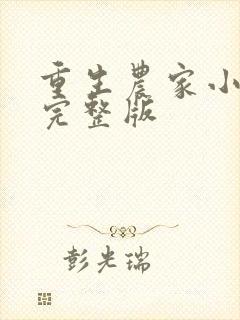 重生農家小
完整版
彭光瑞